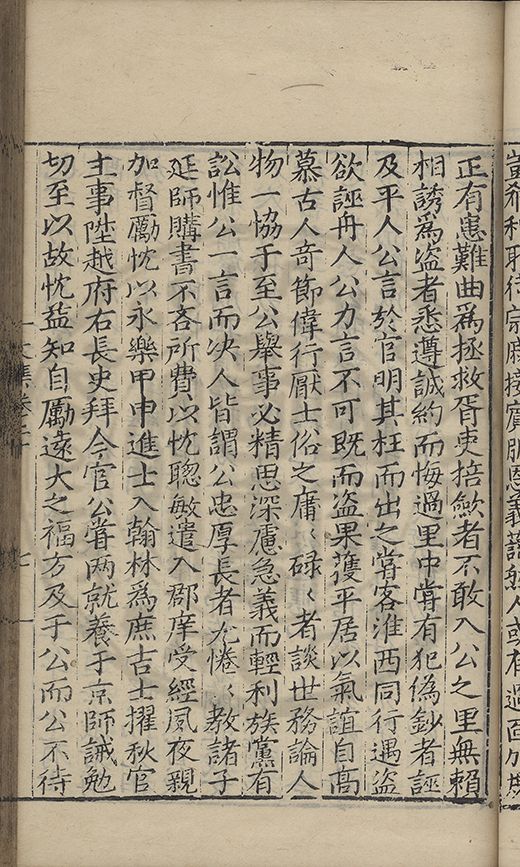 豈希利耶行宗戚接賓朋恩義藹然人或有過面
正有患難曲爲拯救胥吏掊斂者不敢入公之里無賴
相誘爲盜者悉遵誡約而悔過里中嘗有犯偽鈔者誣
及平人公言於官明其枉而出之嘗客淮西同行遇盜
欲誣舟人公力言不可既而盜果獲平居以氣誼自高
慕古人奇節偉行厭士俗之庸〻碌〻者談世務論人
物一恊于至公舉事必精思深慮急義而輕利族黨有
訟惟公一言而决人皆謂公忠厚長者尤惓〻教諸子
延師購書不吝所費以忱聦敏遣入郡庠受經夙夜親
加督勵忱以永樂甲申進士入翰林爲庶吉士擢秋官
主事陞越府右長史拜今官公嘗两就養于京師誡勉
切至以故忱益知自勵遠大之福方及于公而公不待
文集卷
七